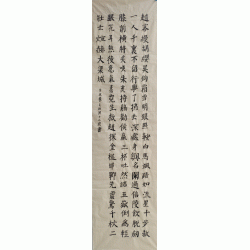 趙客縵胡纓吳鉤霜雪明銀鞍照白馬颯踏如流星十步殺
一人千里不留行事了拂衣去深藏身與名閑過信陵飲脫劍
膝前橫將炙啖朱亥持觴勸侯嬴三杯吐然諾五嶽倒為輕
眼花耳熱後意氣素霓生救趙揮金槌邯鄲先震驚千秋二
壯士烜赫大梁城